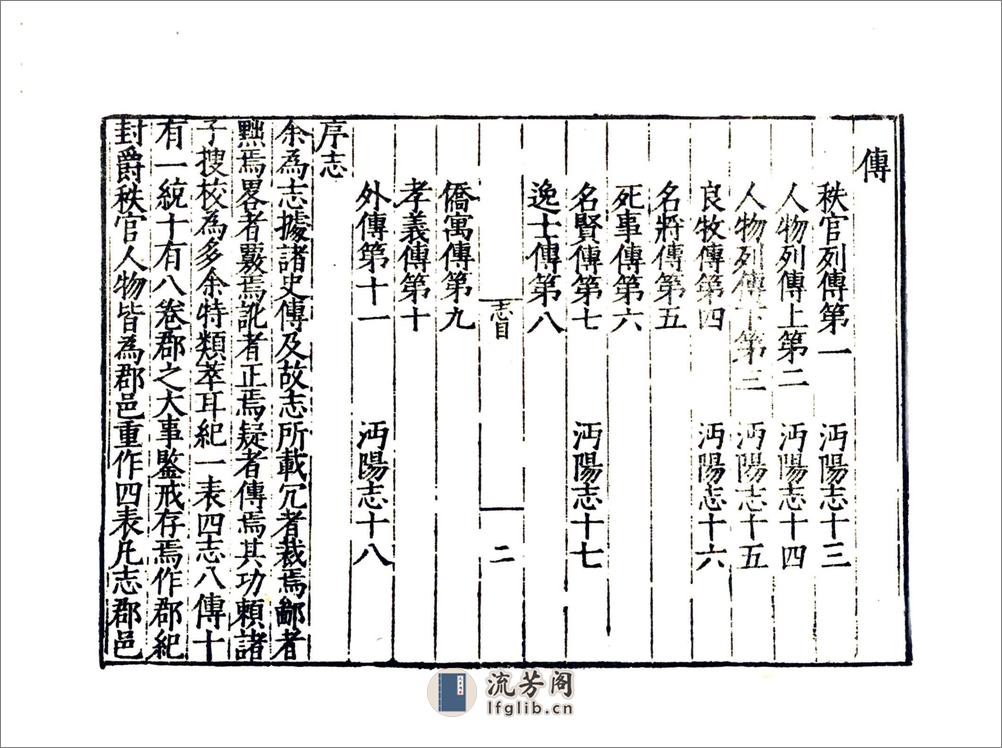 傳
秩官列傳第一 沔陽志十三
人物列傳上第二 沔陽志十四
人物列傳下第三 沔陽志十五
良牧傳第四 沔陽志十六
名將傳第五
死事傳第六
名賢傳第七 沔陽志十七
逸士傳第八
志目 二
僑寓傳第九
孝義傳第十
外傳第十一 沔陽志十八
序志
余為志據諸史傳及故志所載冗者裁焉鄙者
黜焉畧者覈焉訛者正焉疑者傳焉其功賴諸
子搜校為多余特類萃耳紀一表四志八傳十
有一統十有八卷郡之大事鑒戒存焉作郡紀
封爵秩官人物皆為郡邑重作四表凡志郡邑
流芳阁
lfglib.cn